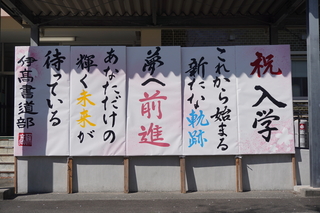 祝
入学
これから始まる
新たな軌跡
夢へ前進
あなただけの
輝く未来が
待っている
伊高書道部